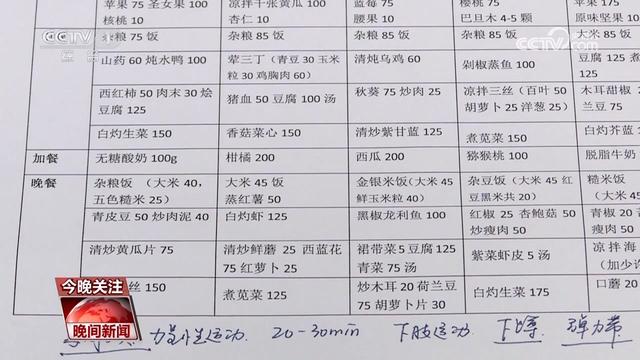 苹果 75 圣女果 100
凉拌千张黄瓜 100
蓝莓 75
樱桃 75
苹果 175
核桃 10
杏仁 10
腰果 10
巴旦木 4-5 颗
原味坚果 10
杂粮 75 饭
杂粮 85 饭
杂粮 85 饭
杂粮 85 饭
大米 85 饭
山药 60 炖水鸭 100
荤三丁（青豆 30 玉米粒 30 鸡胸肉 60）
清炖乌鸡 60
剁椒蒸鱼 100
豆腐 125 煮
西红柿 50 肉末 30 烩豆腐 125
猪血 50 豆腐 100 汤
秋葵 75 炒肉 25
凉拌三丝（百叶 50 胡萝卜 25 洋葱 25）
木耳甜椒
兰豆 75
白灼生菜 150
香菇菜心 150
清炒紫甘蓝 125
煮苋菜 150
白灼芥蓝
加餐
无糖酸奶 100g
柑橘 200
西瓜 200
猕猴桃 100
脱脂牛奶
晚餐
杂粮饭（大米 40，五色糙米 25）
大米 45 饭
蒸红薯 50
金银米饭（大米 45 鲜玉米粒 40）
杂豆饭（大米 45 红豆黑米共 20）
糙米饭
青皮豆 50 炒肉泥 40
白灼虾 125
黑椒龙利鱼 100
红椒 25 杏鲍菇 50 炒瘦肉 50
青椒 20
瘦肉 50
清炒黄瓜片 75
清炒鲜蘑 25 西蓝花 75 红萝卜 25
裙带菜 5 豆腐 125 青菜 75 汤
紫菜虾皮 5 汤
凉拌海
丝 150
煮苋菜 125
炒木耳 20 荷兰豆 75 胡萝卜片 30
白灼生菜 175
口蘑 20
力量性运动 20-30min 下肢运动 下蹲 弹力带
CCTV
CCTV
今晚关注
晚间新闻